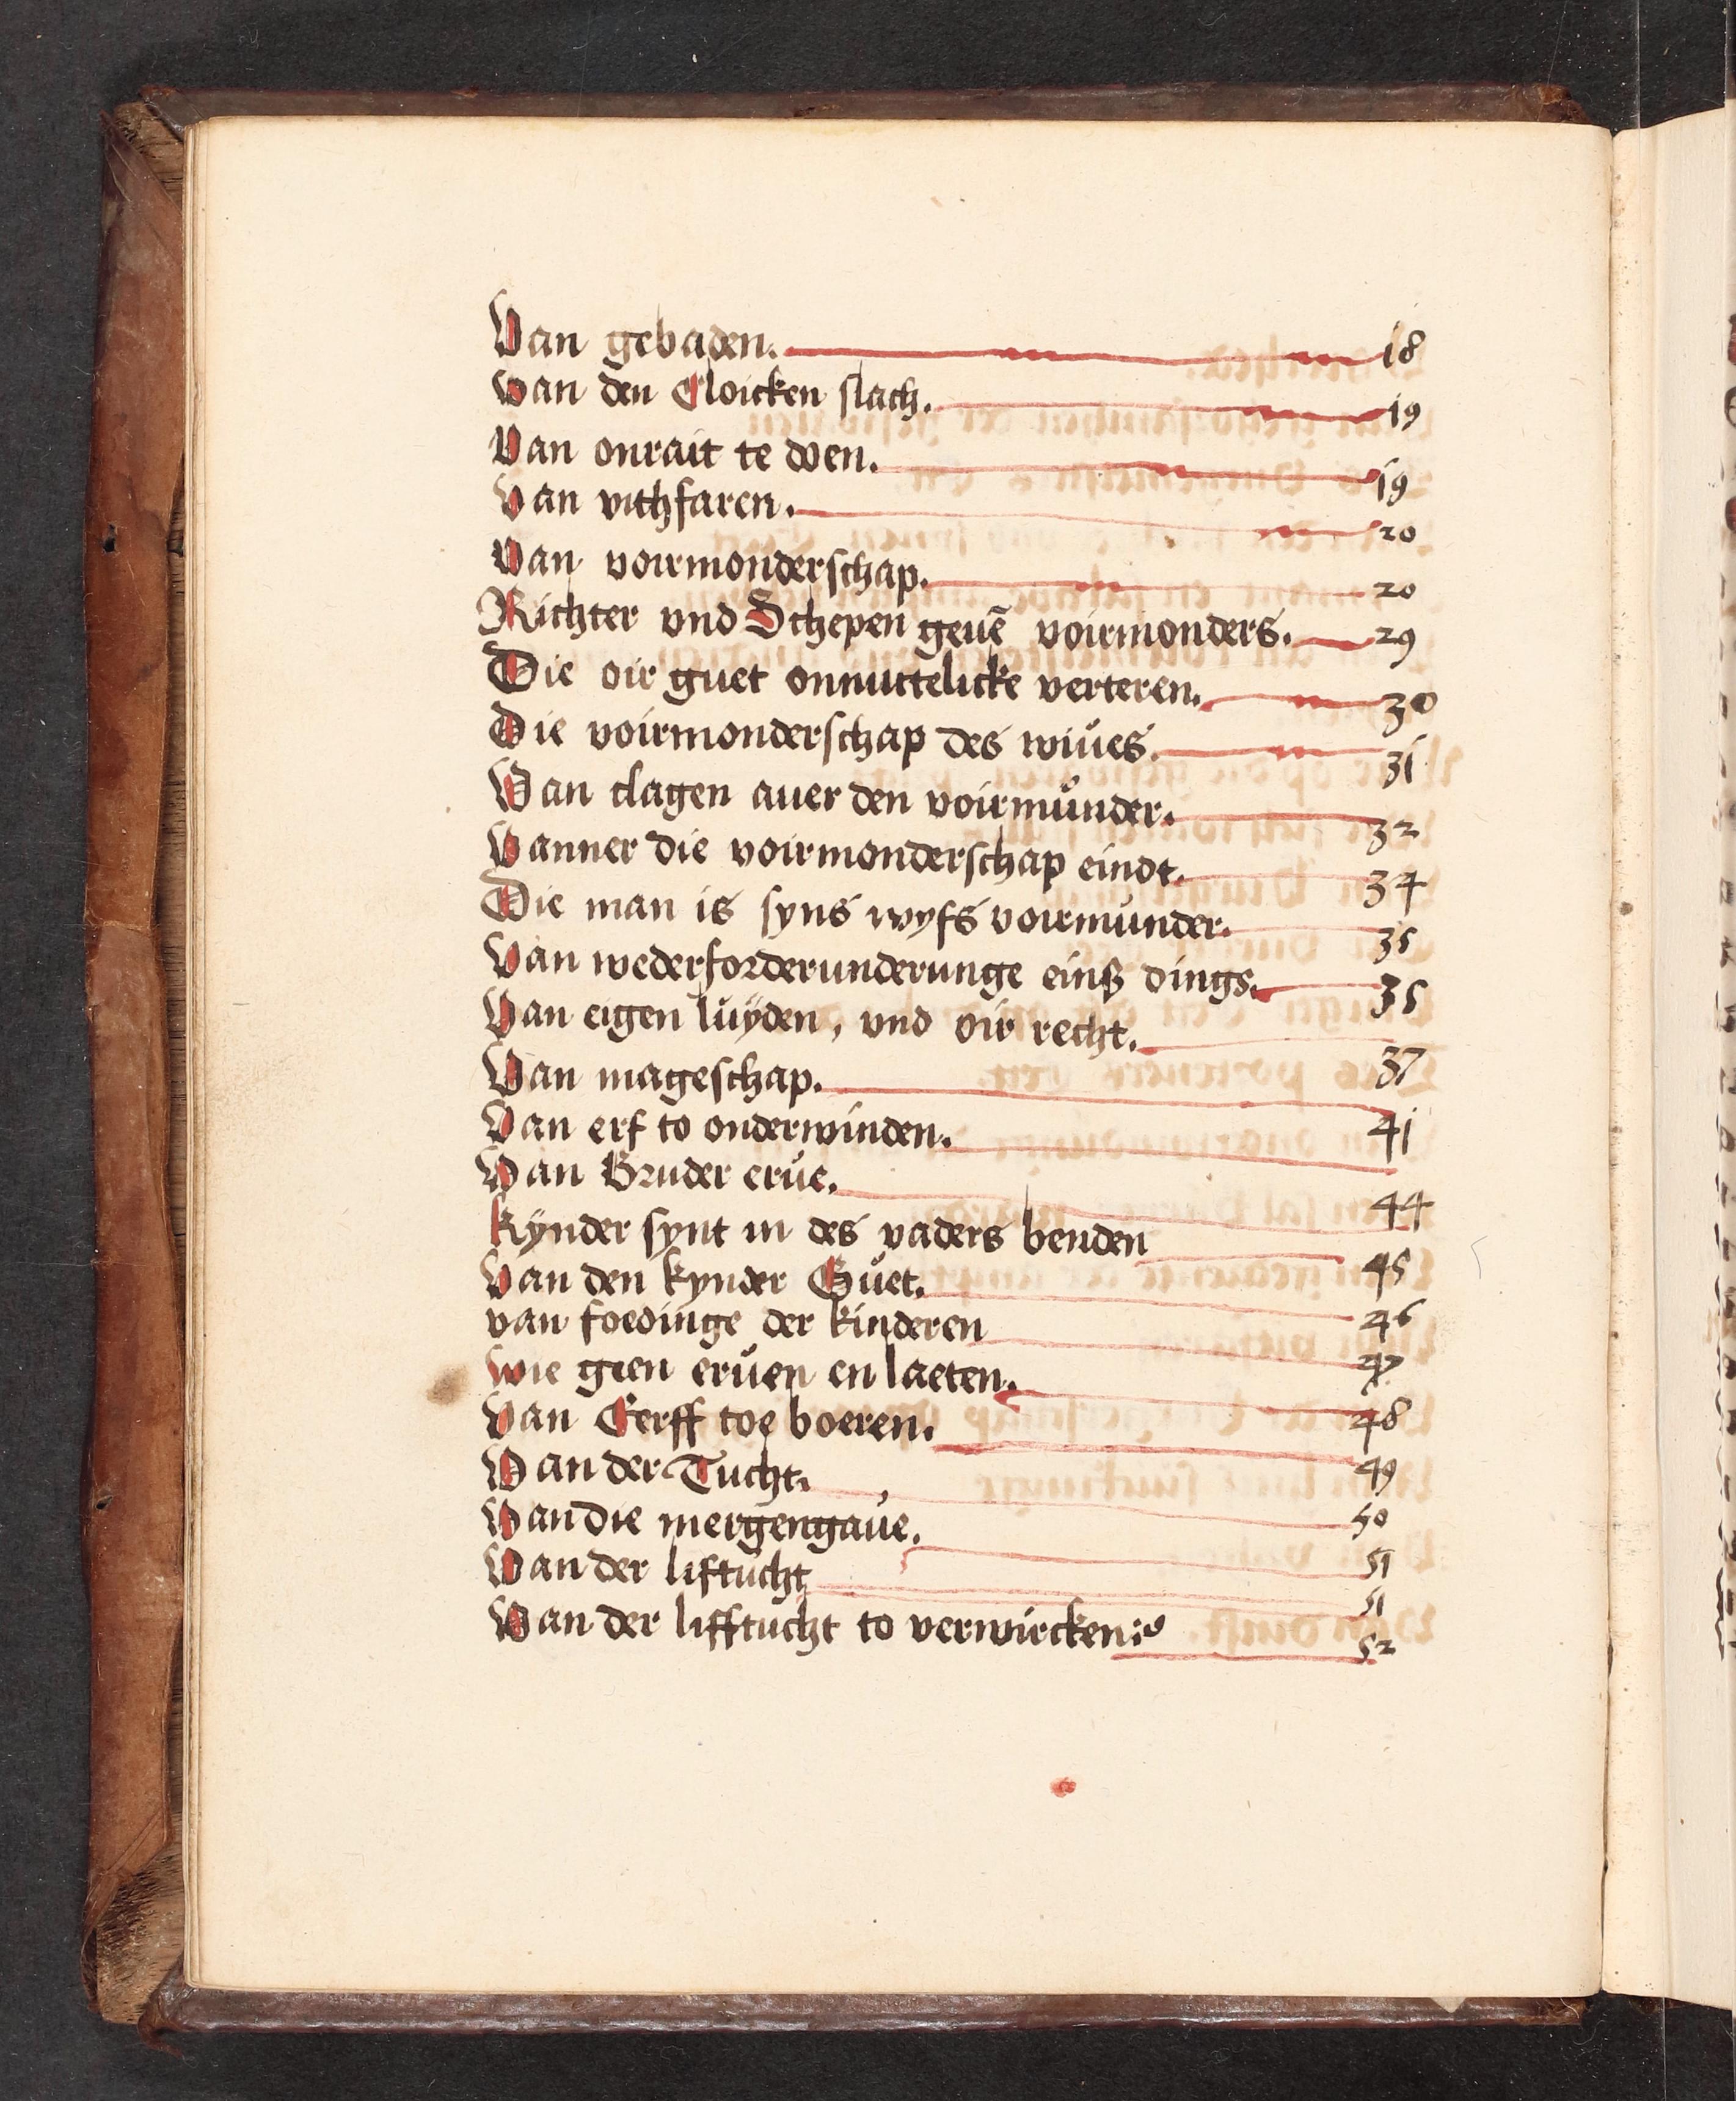 Van gebaden. 18
van den Cloicken slach. 19
Van onrait te doen. 19
Van vithfaren. 20
Van voirmonderschap. 20
Richter vnd Schepen geuē voirmonders. 29
Die oir guet onnuttelicke verteren. 30
Die voirmonderschap des wiůes. 31
Van clagen auer den voirmůnder. 32
Vanner die voirmonderschap eindt. 34
Die man is syns wyfs voirmůnder. 35
Van wederforderunderunge einß dings. 35
Van eigen luÿden, vnd oir recht. 37
Van mageschap. 41
Van erf to onderwinden.
Van Bruder erůe. 44
kÿnder synt in des vaders benden 45
Van den kynder Gůet. 46
van foedinge der kinderen 47
wie gien erůen en laeten. 48
Van Eerff toe boeren. 49
Van der Tucht. 50
Van die mergengaůe. 51
Van der liftůcht 51
Van der lifftůcht to verwircken 52